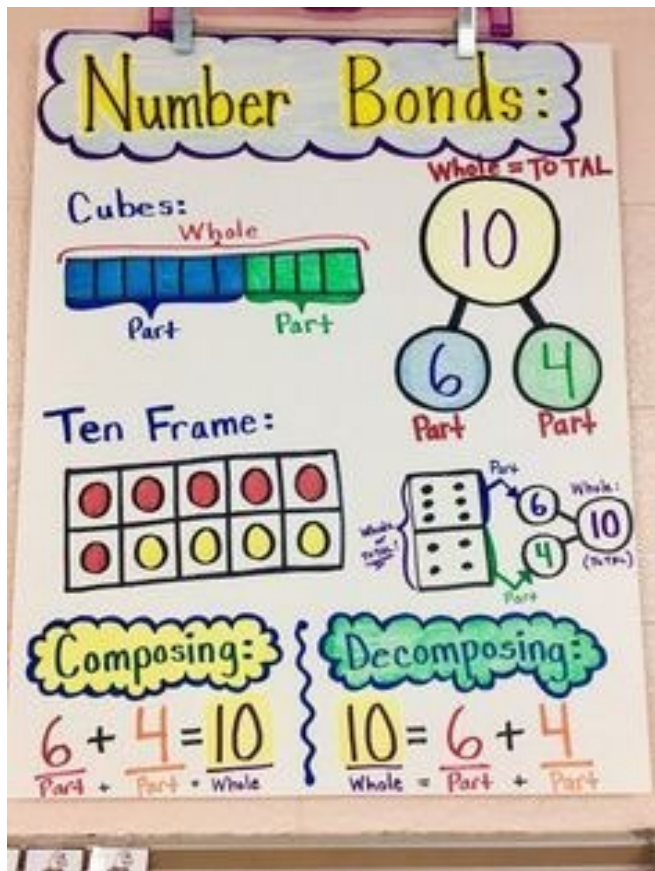 Number Bonds:
Whole = TOTAL
Cubes:
Whole
Part Part
10
6 4
Part Part
Ten Frame:
Part
Whole or TOTAL!
6
Whole:
10
(TOTAL)
4
Part
Composing:
6 + 4 = 10
Part + Part = Whole
Decomposing:
10 = 6 + 4
Whole = Part + Part